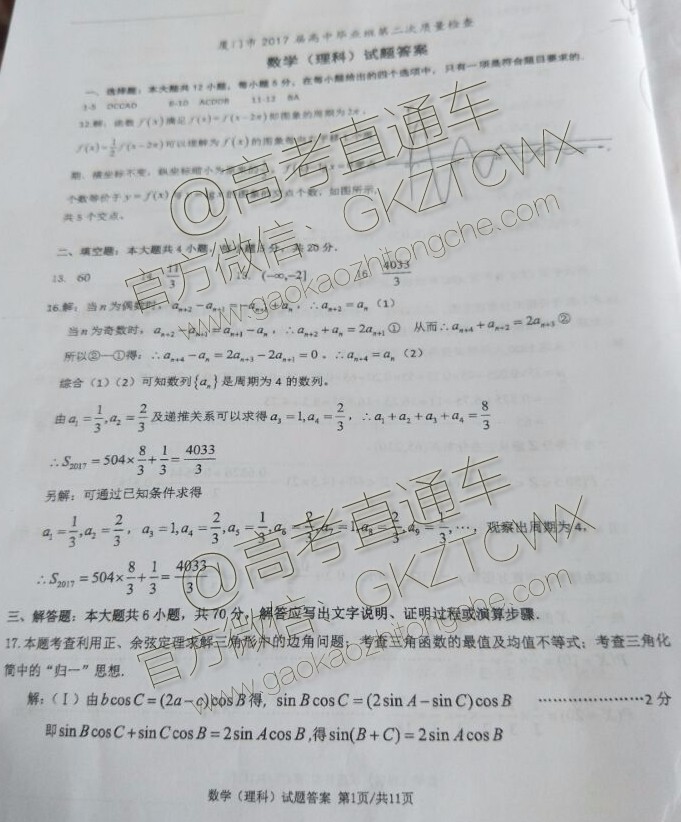 厦门市 2017 届高中毕业班第二次质量检查
数学（理科）试题答案
一、选择题：本大题共 12 小题，每小题 5 分，在每小题给出的四个选项中，只有一项是符合题目要求的．
1-5 DCCAD 6-10 ACDDB 11-12 BA
12.解：函数 f(x) 满足 f(x)=f(x-2π) 即图象的周期为 2π，
f(x)=1/2 f(x-2π) 可以理解为 f(x) 的图象每向
横坐标不变，纵坐标缩小为
个数等价于 y=f(x) 的图象的交点个数，如图所示，
共 5 个交点．
二、填空题：本大题共 4 小题，每小题 5 分，共 20 分．
13. 60 14. 11/3 15. (-∞,-2] 16. 4033/3
16.解：当 n 为偶数时，a_{n+2}-a_{n+1}=-a_{n+1}+a_n，∴a_{n+2}=a_n（1）
当 n 为奇数时，a_{n+2}-a_{n+1}=a_{n+1}-a_n，∴a_{n+2}+a_n=2a_{n+1}① 从而∴a_{n+4}+a_{n+2}=2a_{n+3}②
所以②—①得：∴a_{n+4}-a_n=2a_{n+3}-2a_{n+1}=0，∴a_{n+4}=a_n（2）
综合（1）（2）可知数列{a_n}是周期为 4 的数列．
由 a_1=1/3,a_2=2/3 及递推关系可以求得 a_3=1,a_4=2/3，∴a_1+a_2+a_3+a_4=8/3
∴S_{2017}=504×8/3+1/3=4033/3
另解：可通过已知条件求得
a_1=1/3,a_2=2/3，a_3=1,a_4=2/3,a_5=1/3,a_6=2/3,a_7=1,a_8=2/3,a_9=1/3,⋯，观察出周期为 4，
∴S_{2017}=504×8/3+1/3=4033/3
三、解答题：本大题共 6 小题，共 70 分．解答应写出文字说明、证明过程或演算步骤．
17.本题考查利用正、余弦定理求解三角形中的边角问题；考查三角函数的最值及均值不等式；考查三角化
简中的“归一”思想．
解：（Ⅰ）由 bcosC=(2a-c)cosB 得，sinBcosC=(2sinA-sinC)cosB …………………2 分
即 sinBcosC+sinCcosB=2sinAcosB ,得 sin(B+C)=2sinAcosB
数学（理科）试题答案 第1页/共11页
@高考直通车
官方微信：GKZTCWX
www.gaokaozhitongche.com
@高考直通车
官方微信：GKZTCWX
www.gaokaozhitongche.com